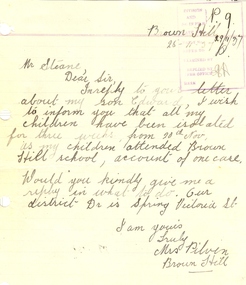 Brown Hill
Mr Steane
Dear Sir,
In reply to your letter
about my son Edward, I wish
to inform you that all my
children have been isolated
for three weeks, from 20th Nov.
as my children attended Brown
Hill school, account of one case.
Would you kindly give me a
reply in what Our
district Dr is Spring Victoria St
I am yours
Truly
Mrs Pilven
Brown Hill